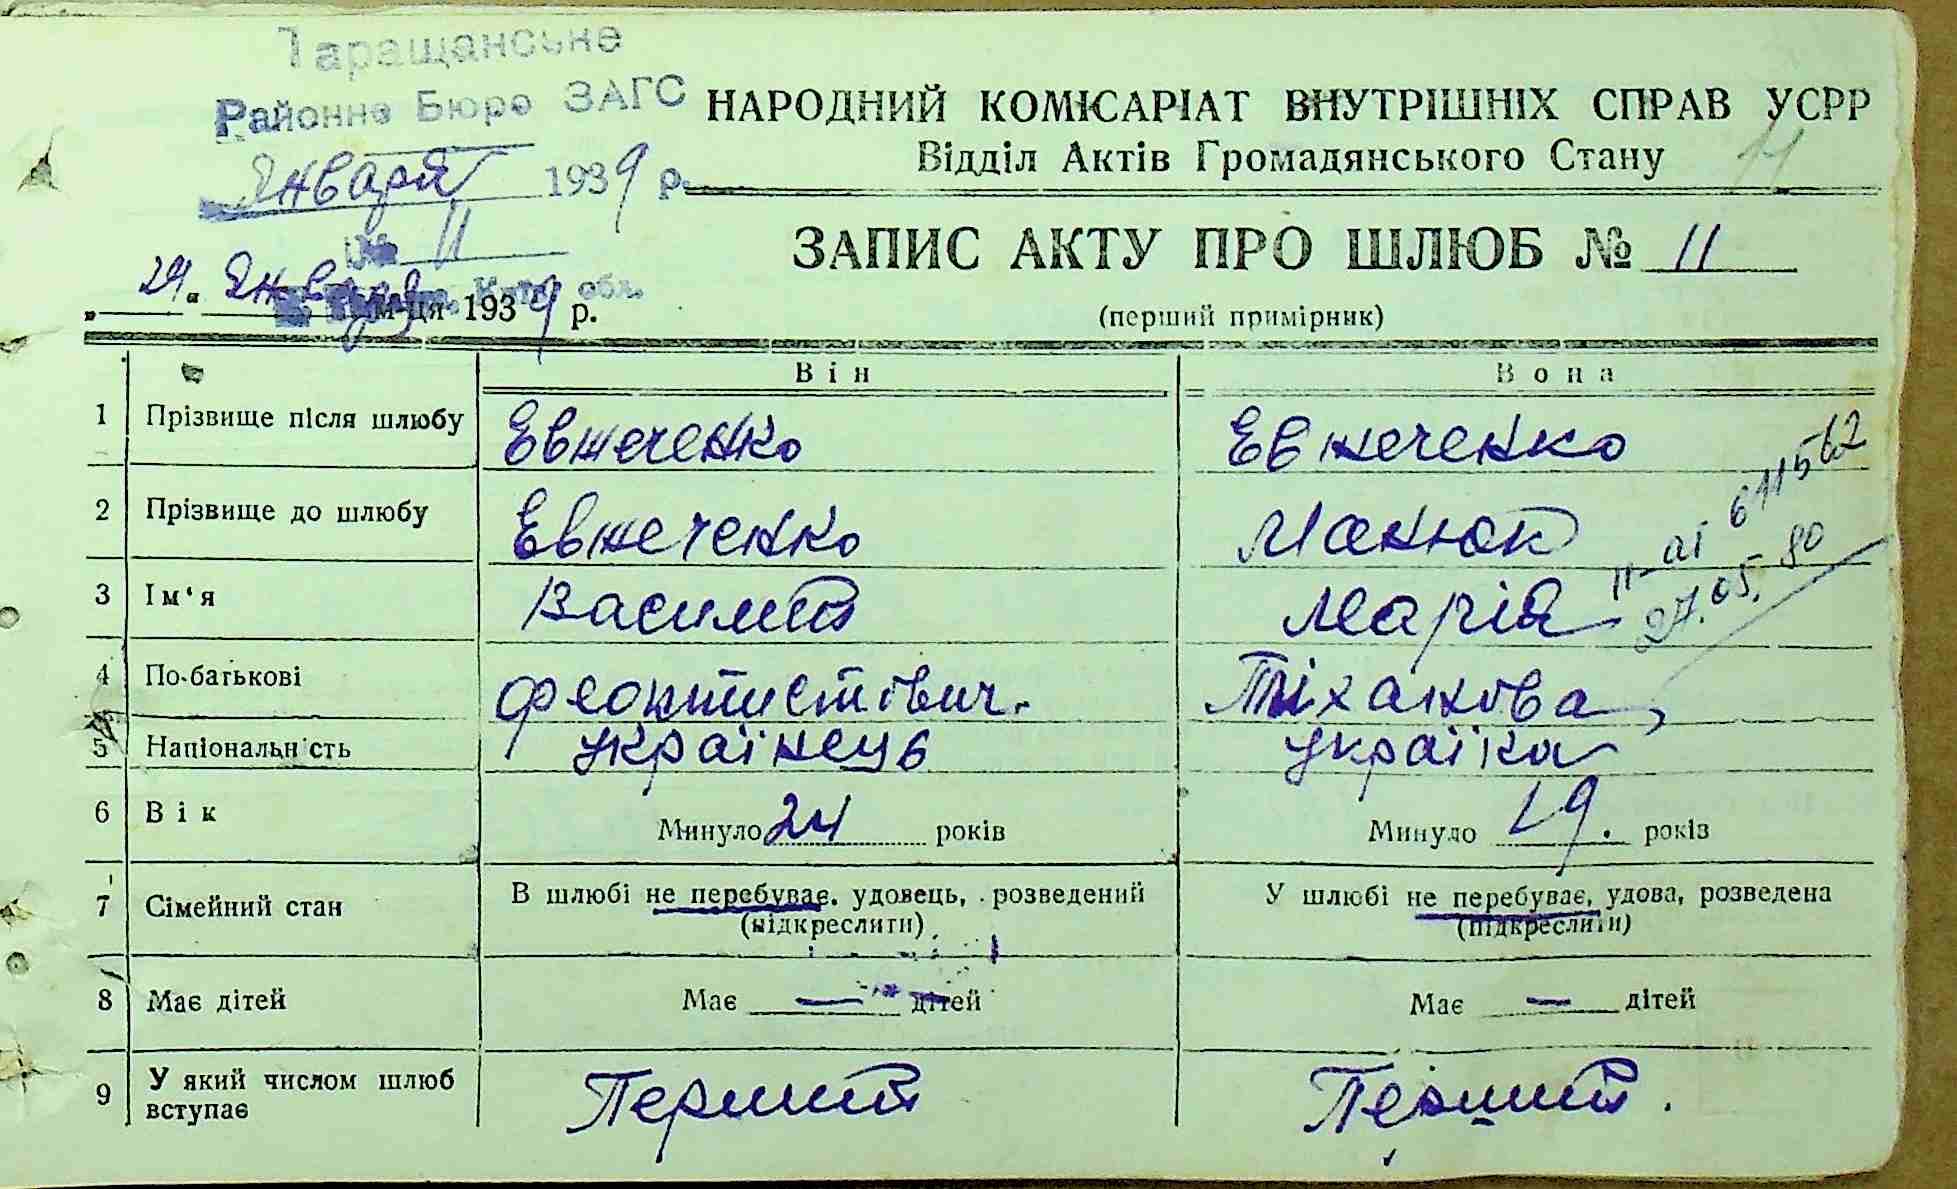 Таращанське
Районне Бюро ЗАГС
Января 1939 р.
№ 11
НАРОДНИЙ КОМІСАРІАТ ВНУТРІШНІХ СПРАВ УСРР
Відділ Актів Громадянського Стану 11
ЗАПИС АКТУ ПРО ШЛЮБ № 11
„ 24 “ Января м-ця 1939 р.
(перший примірник)
Він Вона
1 Прізвище після шлюбу Евтеченко Евтеченко
2 Прізвище до шлюбу Евтеченко Манюк
3 Ім'я Василий Марія
II-АІ 611562
27.05.80
4 По-батькові Феоктистович. Тіханова
5 Національність українець украіка
6 Вік Минуло 24 років Минуло 19. років
7 Сімейний стан В шлюбі не перебуває, удовець, розведений У шлюбі не перебуває, удова, розведена
(підкреслити) (підкреслити)
8 Має дітей Має — дітей Має — дітей
9 У який числом шлюб вступає Перший Перший.